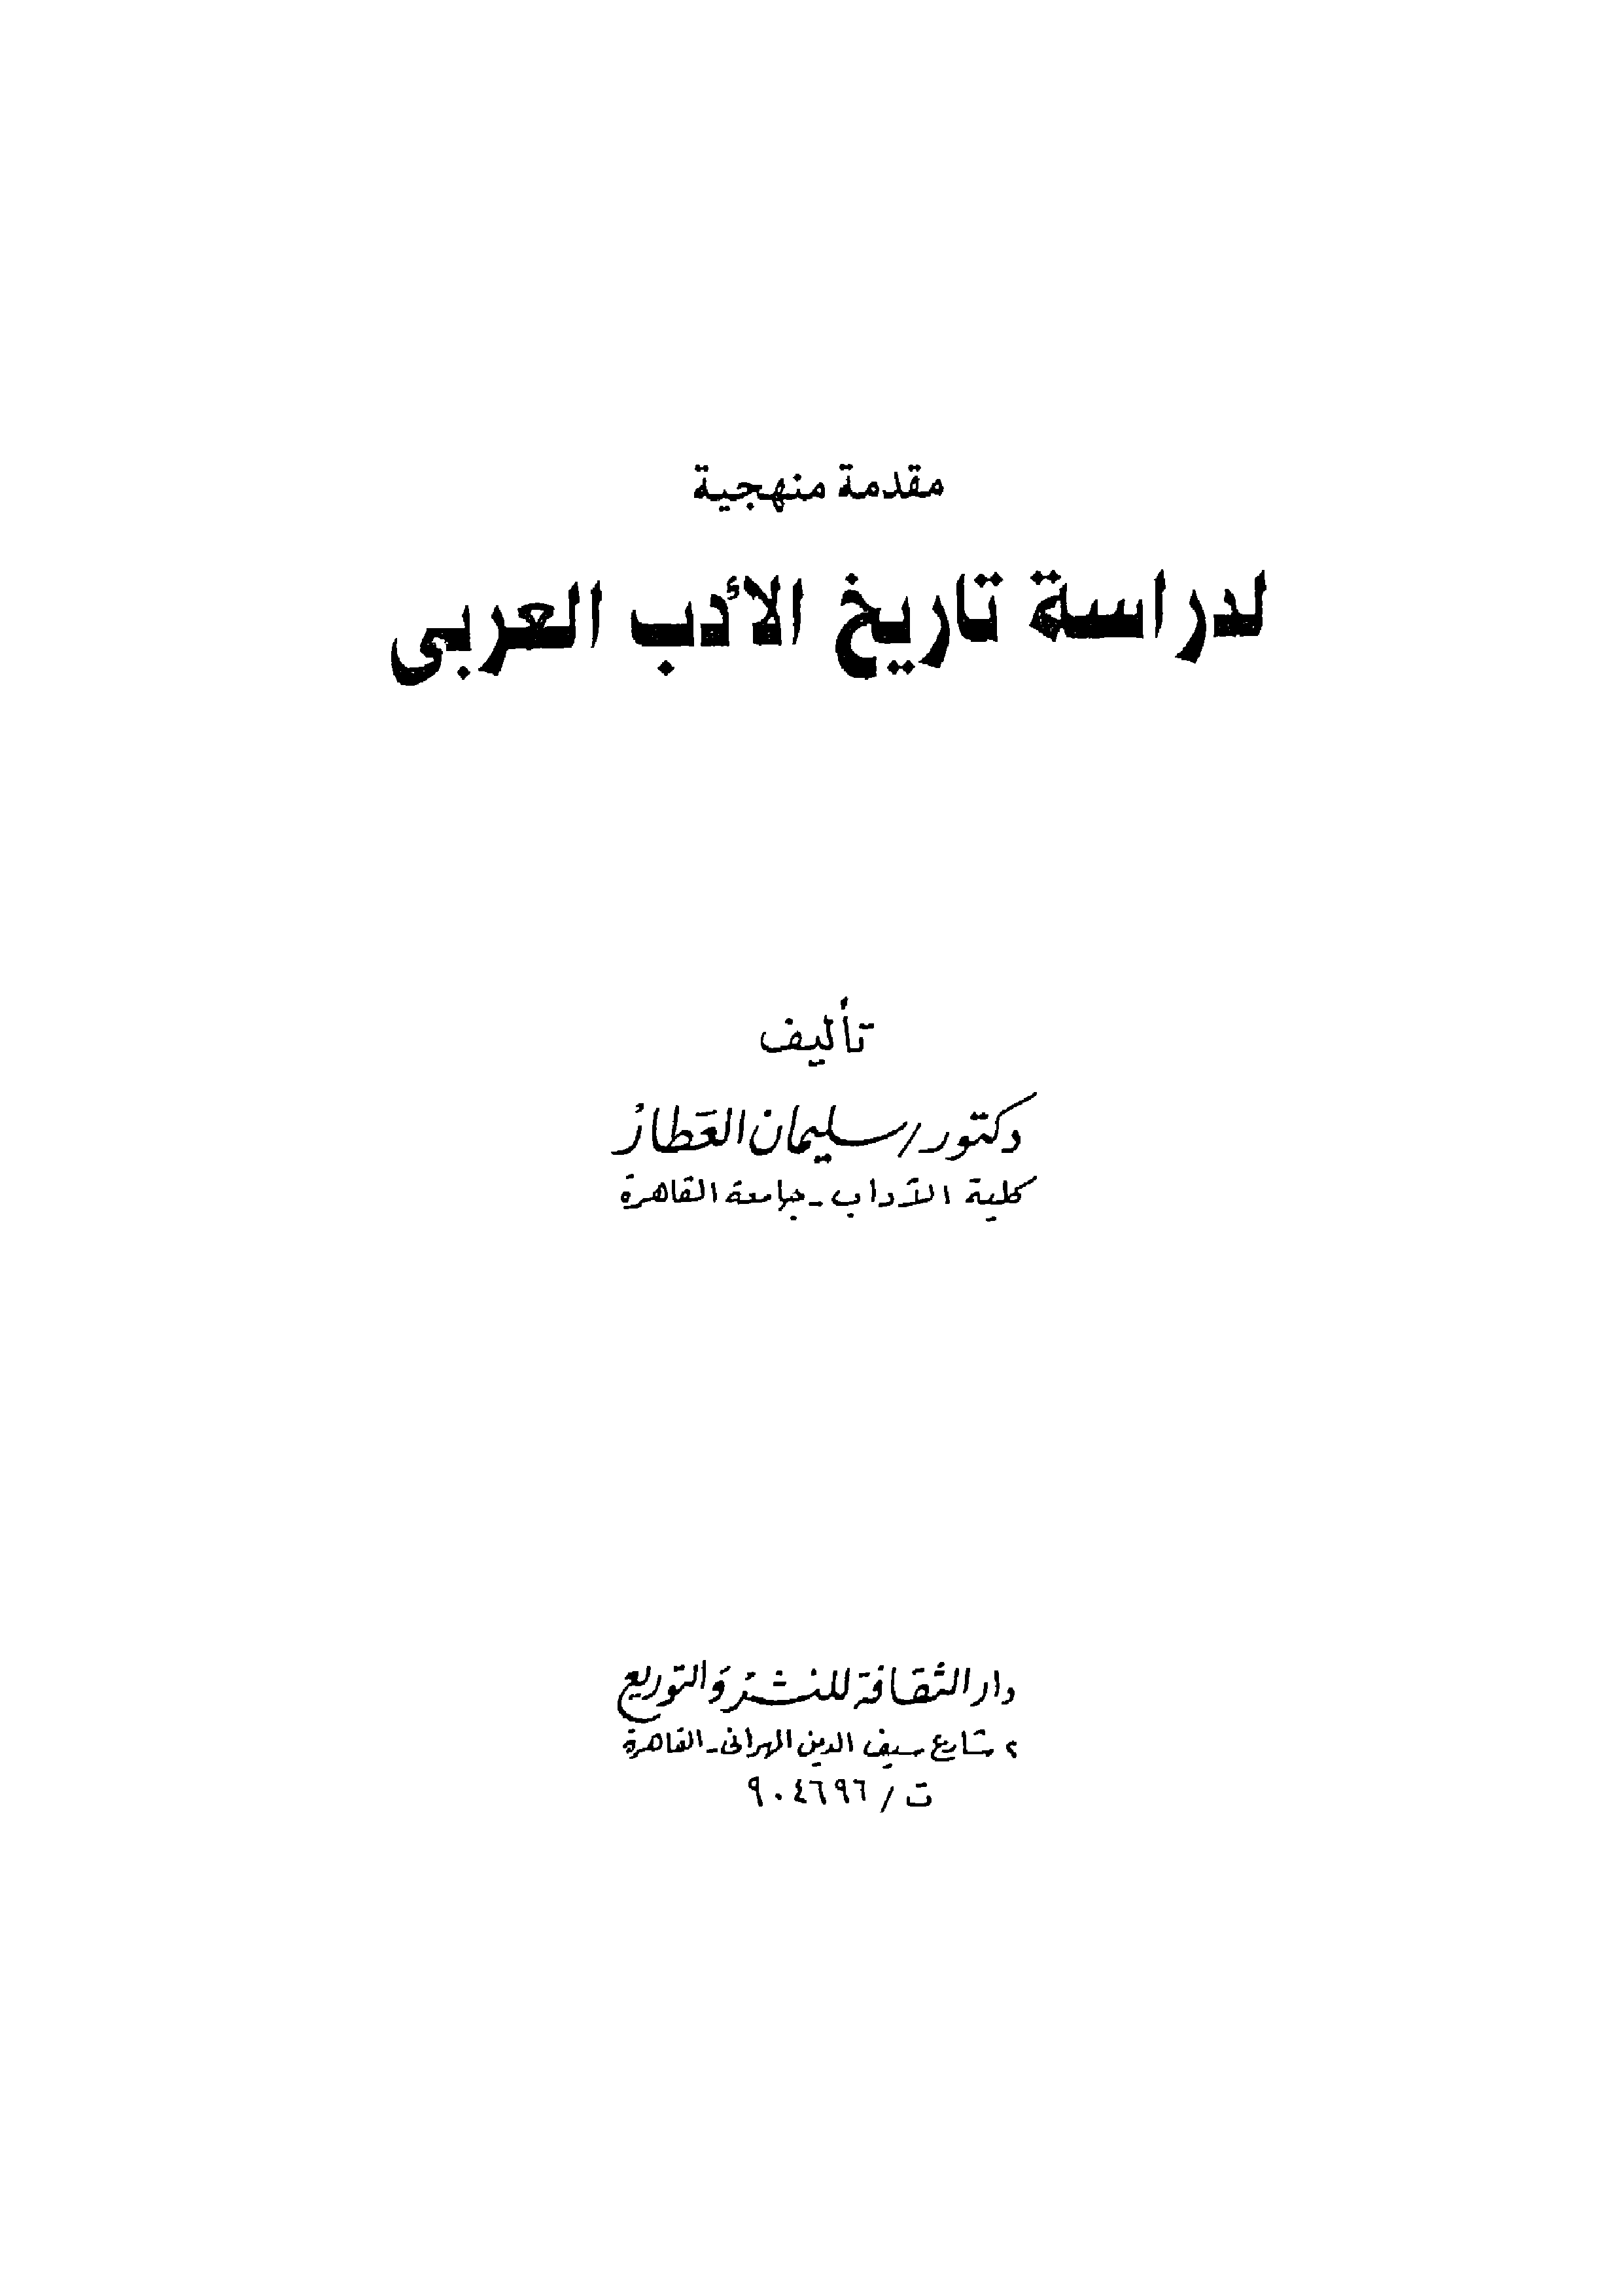 مقدمة منهجية
لدراسة تاريخ الأدب العربى
تأليف
دكتور/سليمان العطار
كلية الآداب - جامعة القاهرة
دار الثقافة للنشر والتوزيع
٢ شارع سيف الدين المهرانى - القاهرة
ت / ٩٠٤٦٩٦